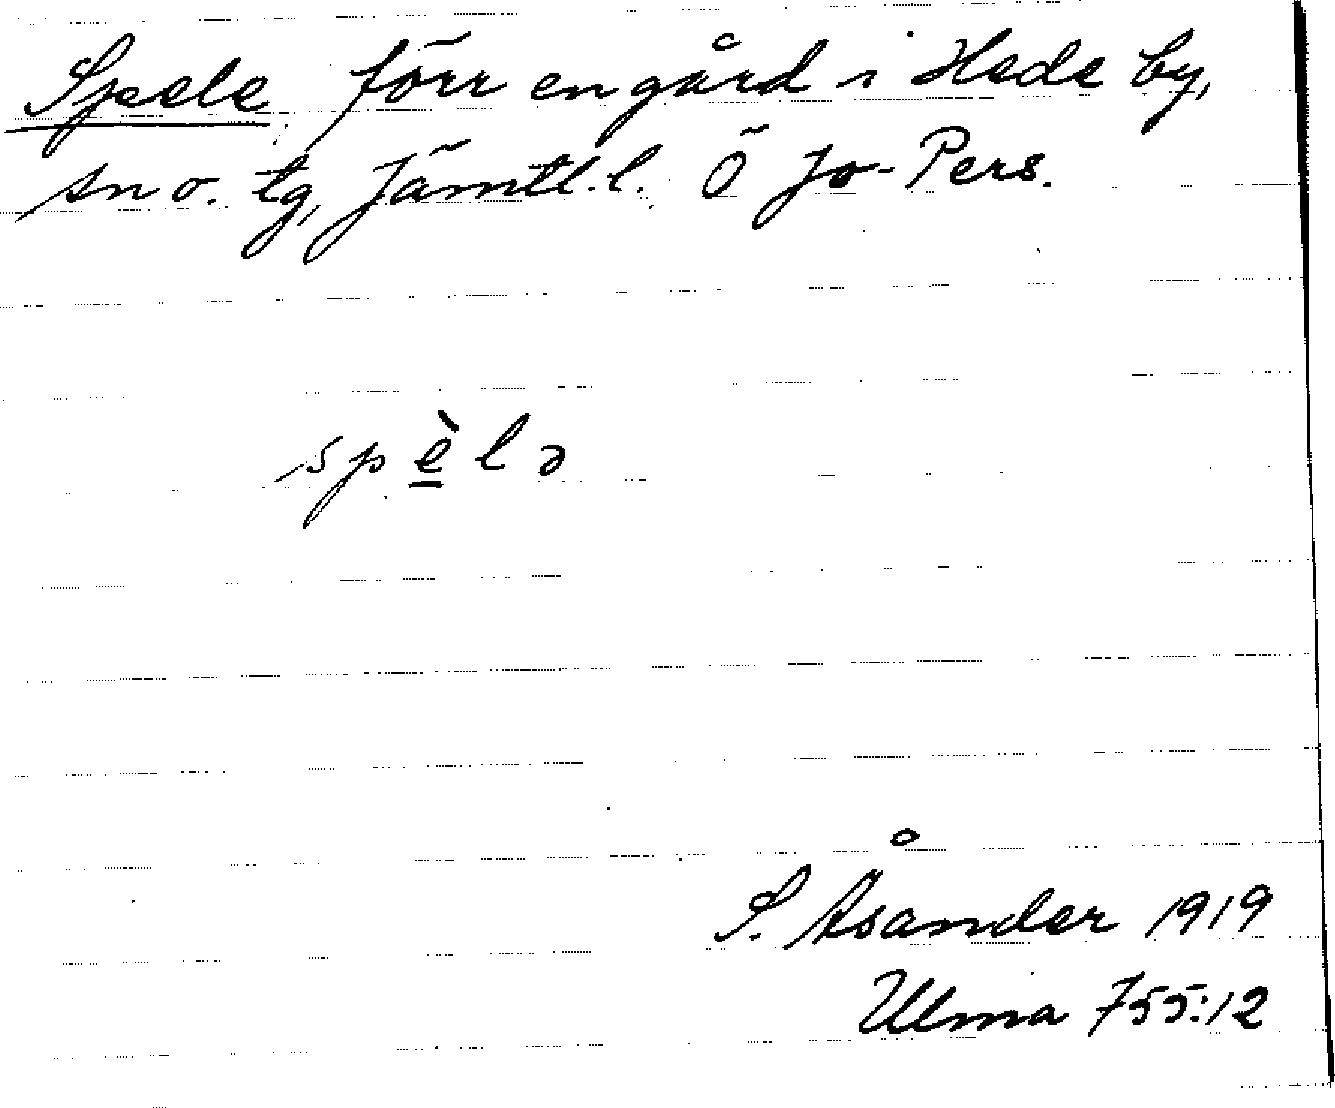 Speele förr en gård i Hede by,
sn o. tg, Jämtl. l. Ö Jo-Pers.
spè̱lə
S. Åsander 1919
Ulma 755:12